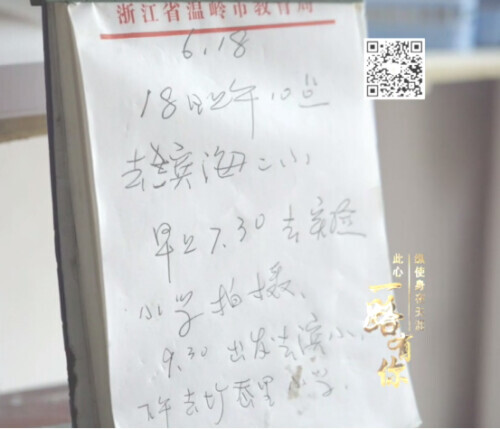 浙江省温岭市教育局
6.18
18日上午10点
去滨海二小
早上7.30去实验
小学拍摄、
9.30出发去滨小、
下午去坞根里小学.
此心
一路有你